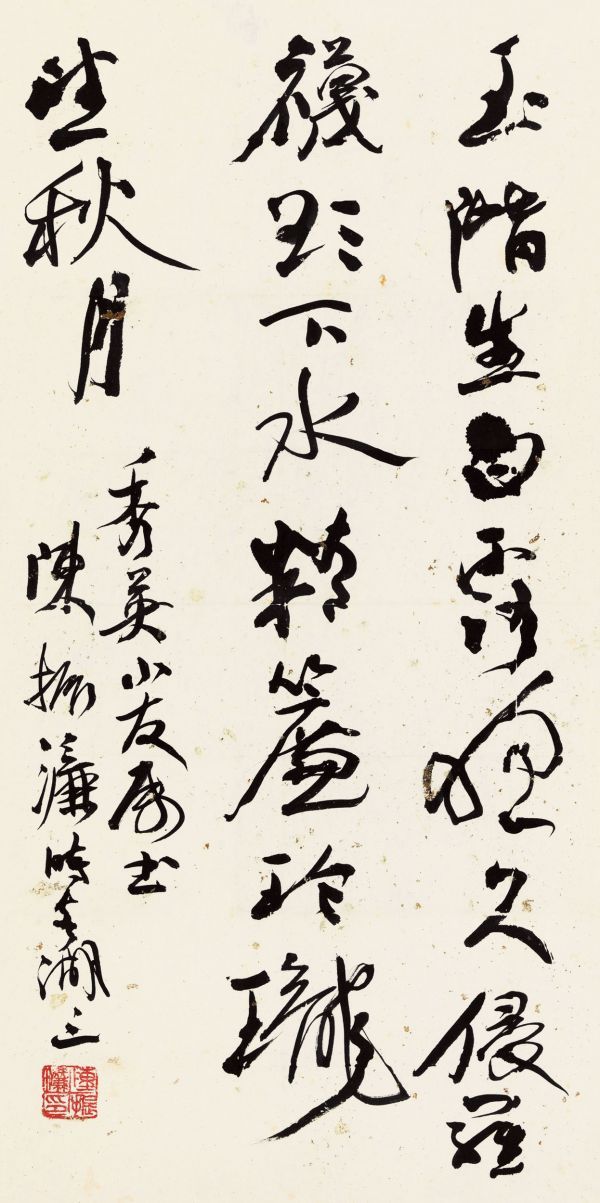 玉階生白露夜久侵羅
襪却下水精簾玲瓏
望秋月
秀英小友属书
陳振濂時在湖上
陳振濂印